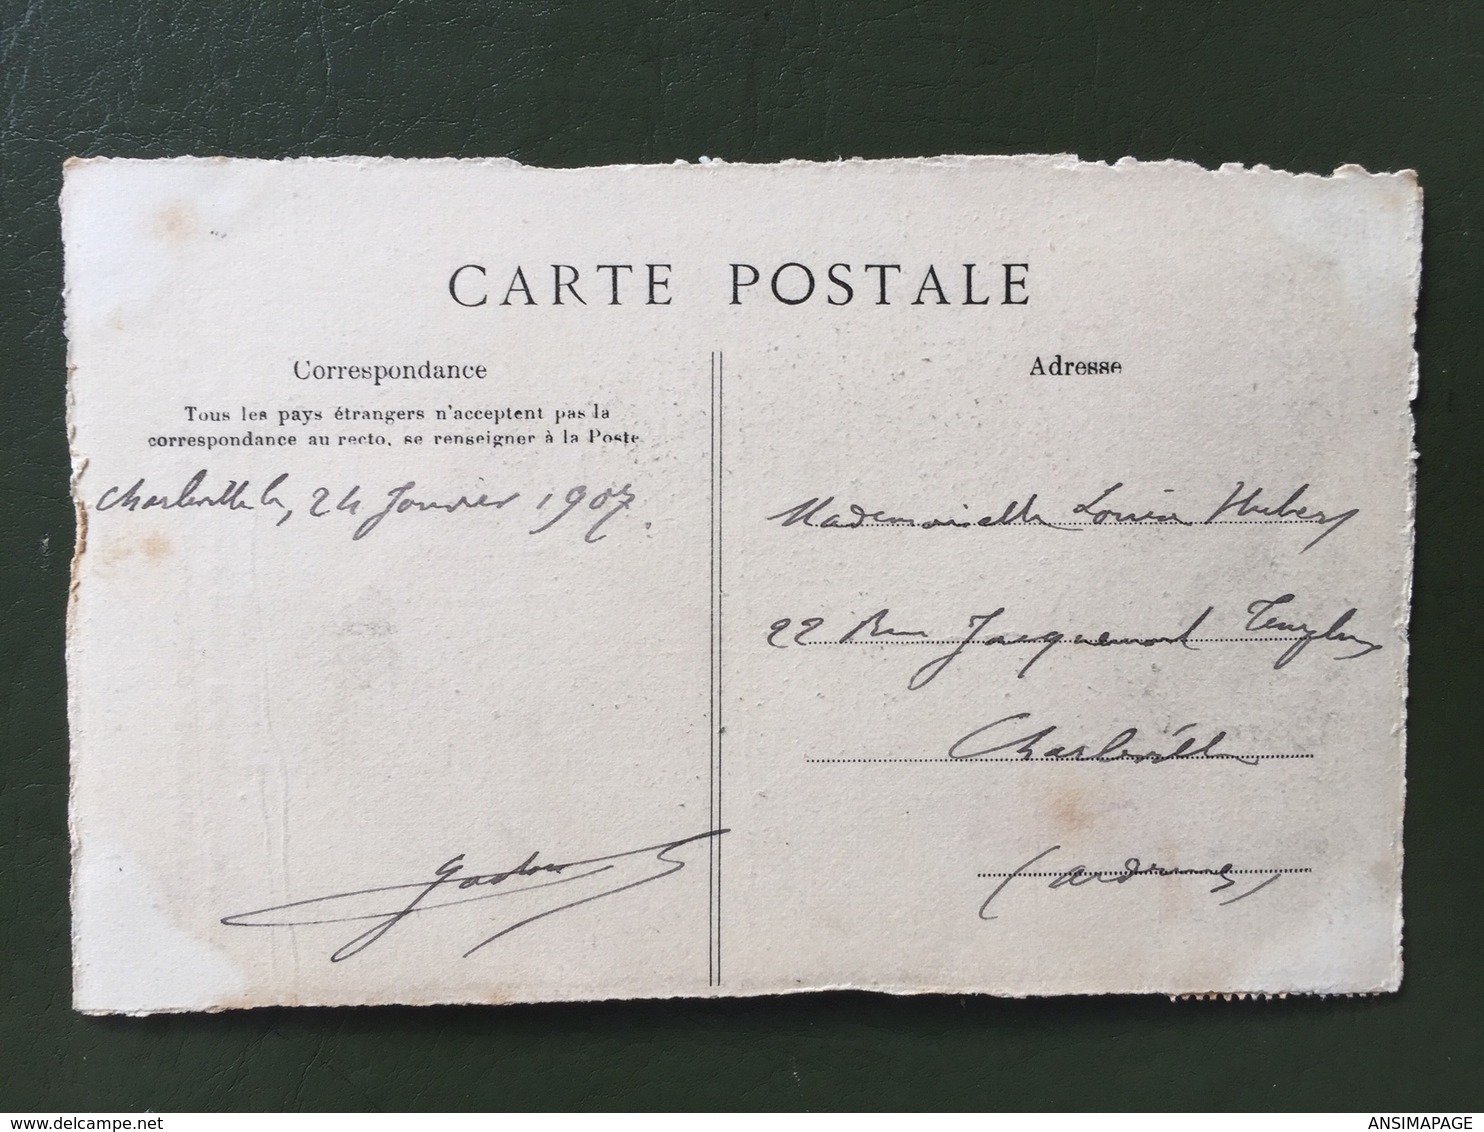 CARTE POSTALE
Correspondance
Tous les pays étrangers n'acceptent pas la
correspondance au recto, se renseigner à la Poste
Charleville le, 24 Janvier 1907.
Gaston
Adresse
Mademoiselle Louise Hubert
22 Rue Jacquemart Templeux
Charleville
(Ardennes)
ANSIMAPAGE